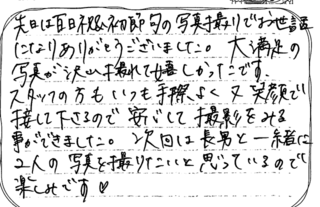 先日は百日祝&初節句の写真撮りでお世話
になりありがとうございました。大満足の
写真が沢山撮れて嬉しかったです。
スタッフの方もいつも手際よく又笑顔で
接して下さるので安心して撮影をみる
事ができました。次回は長男と一緒に
2人の写真を撮りたいと思っているので
楽しみです♡